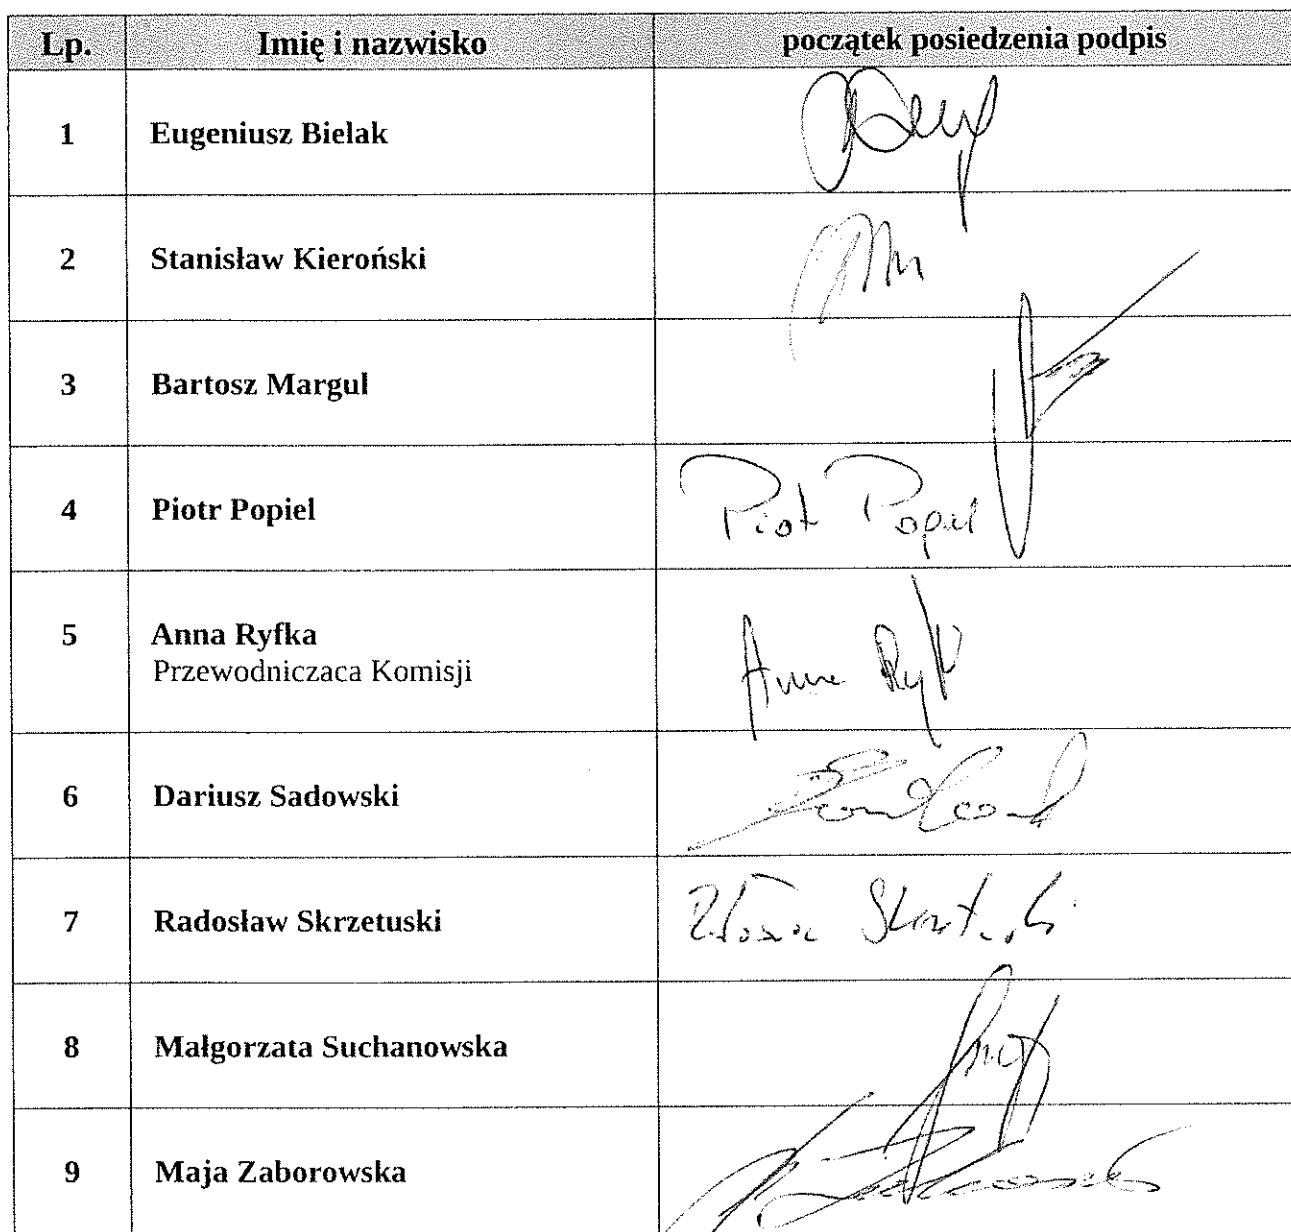 Lp. Imię i nazwisko początek posiedzenia podpis
1 Eugeniusz Bielak
2 Stanisław Kieroński
3 Bartosz Margul
4 Piotr Popiel Piotr Popiel
5 Anna Ryfka
Przewodniczaca Komisji Anna
6 Dariusz Sadowski
7 Radosław Skrzetuski
8 Małgorzata Suchanowska
9 Maja Zaborowska